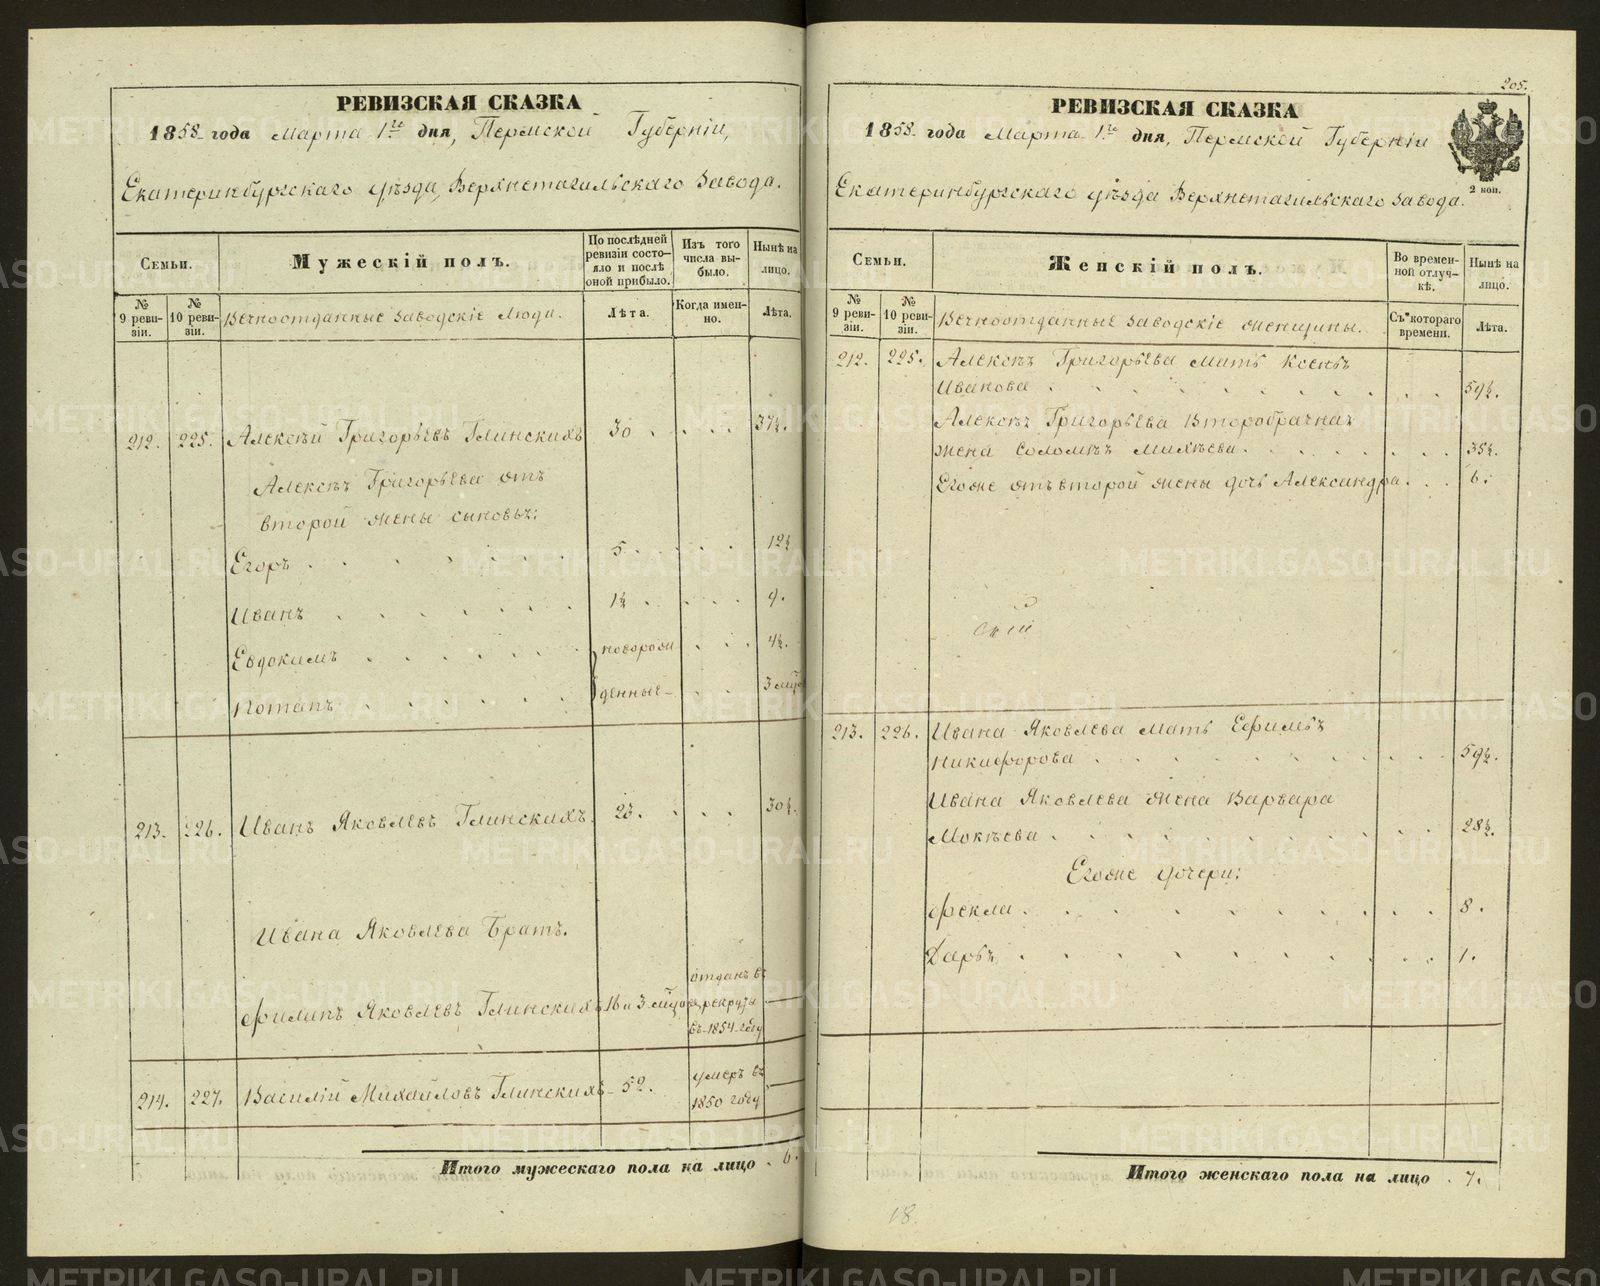 РЕВИЗСКАЯ СКАЗКА
1858 года Марта 1го дня, Пермской Губерніи,
Екатеринбургскаго уѣзда, Верхнетагильскаго Завода.
Семьи.
Мужескій полъ.
По послѣдней ревизіи состояло и послѣ оной прибыло.
Изъ того числа выбыло.
Нынѣ на лицо.
№ 9 ревизіи.
№ 10 ревизіи.
Вечноотданные Заводскіе Люди.
Лѣта.
Когда именно.
Лѣта.
212. 225. Алексѣй Григорьевъ Глинскихъ 30 . . . . 37½.
Алексѣя Григорьева отъ
второй жены сыновья:
Егоръ . . . . . . 5 . . . . . 12½
Иванъ . . . . . . 1½ . . . . 9.
Евдокимъ . . . . . новорож . . . 4½.
Потапъ . . . . . . денные . . . 3 мѣс
213. 226. Иванъ Яковлевъ Глинскихъ. 23. . . . 30½.
Ивана Яковлева Братъ.
Филипъ Яковлевъ Глинскихъ 16 и 3 мѣс отданъ въ рекруты въ 1854 году —
214. 227. Василій Михайловъ Глинскихъ 52. умеръ въ 1850 году —
Итого мужескаго пола на лицо . 6.
205.
РЕВИЗСКАЯ СКАЗКА
1858 года Марта 1го дня, Пермской Губерніи
2 коп.
Екатеринбургскаго уѣзда Верхнетагильскаго Завода.
Семьи.
Женскій полъ.
Во временной отлучкѣ.
Нынѣ на лицо.
№ 9 ревизіи.
№ 10 ревизіи.
Вечноотданные Заводскіе женщины.
Съ котораго времени.
Лѣта.
212. 225. Алексѣя Григорьева Мать Ксенья
Иванова . . . . . . . . 59½.
Алексѣя Григорьева Второбрачная
жена Соломея Михѣева . . . . . . 35½.
Егоже отъ второй жены дочь Александра . . . 6.
213. 226. Ивана Яковлева Мать Ефимья
Никифорова . . . . . . . . 59½.
Ивана Яковлева жена Варвара
Мокѣева . . . . . . . . 28½.
Егоже дочери:
Фекла . . . . . . . . 8.
Дарья . . . . . . . . 1.
Итого женскаго пола на лицо . 7.
18.
METRIKI.GASO-URAL.RU